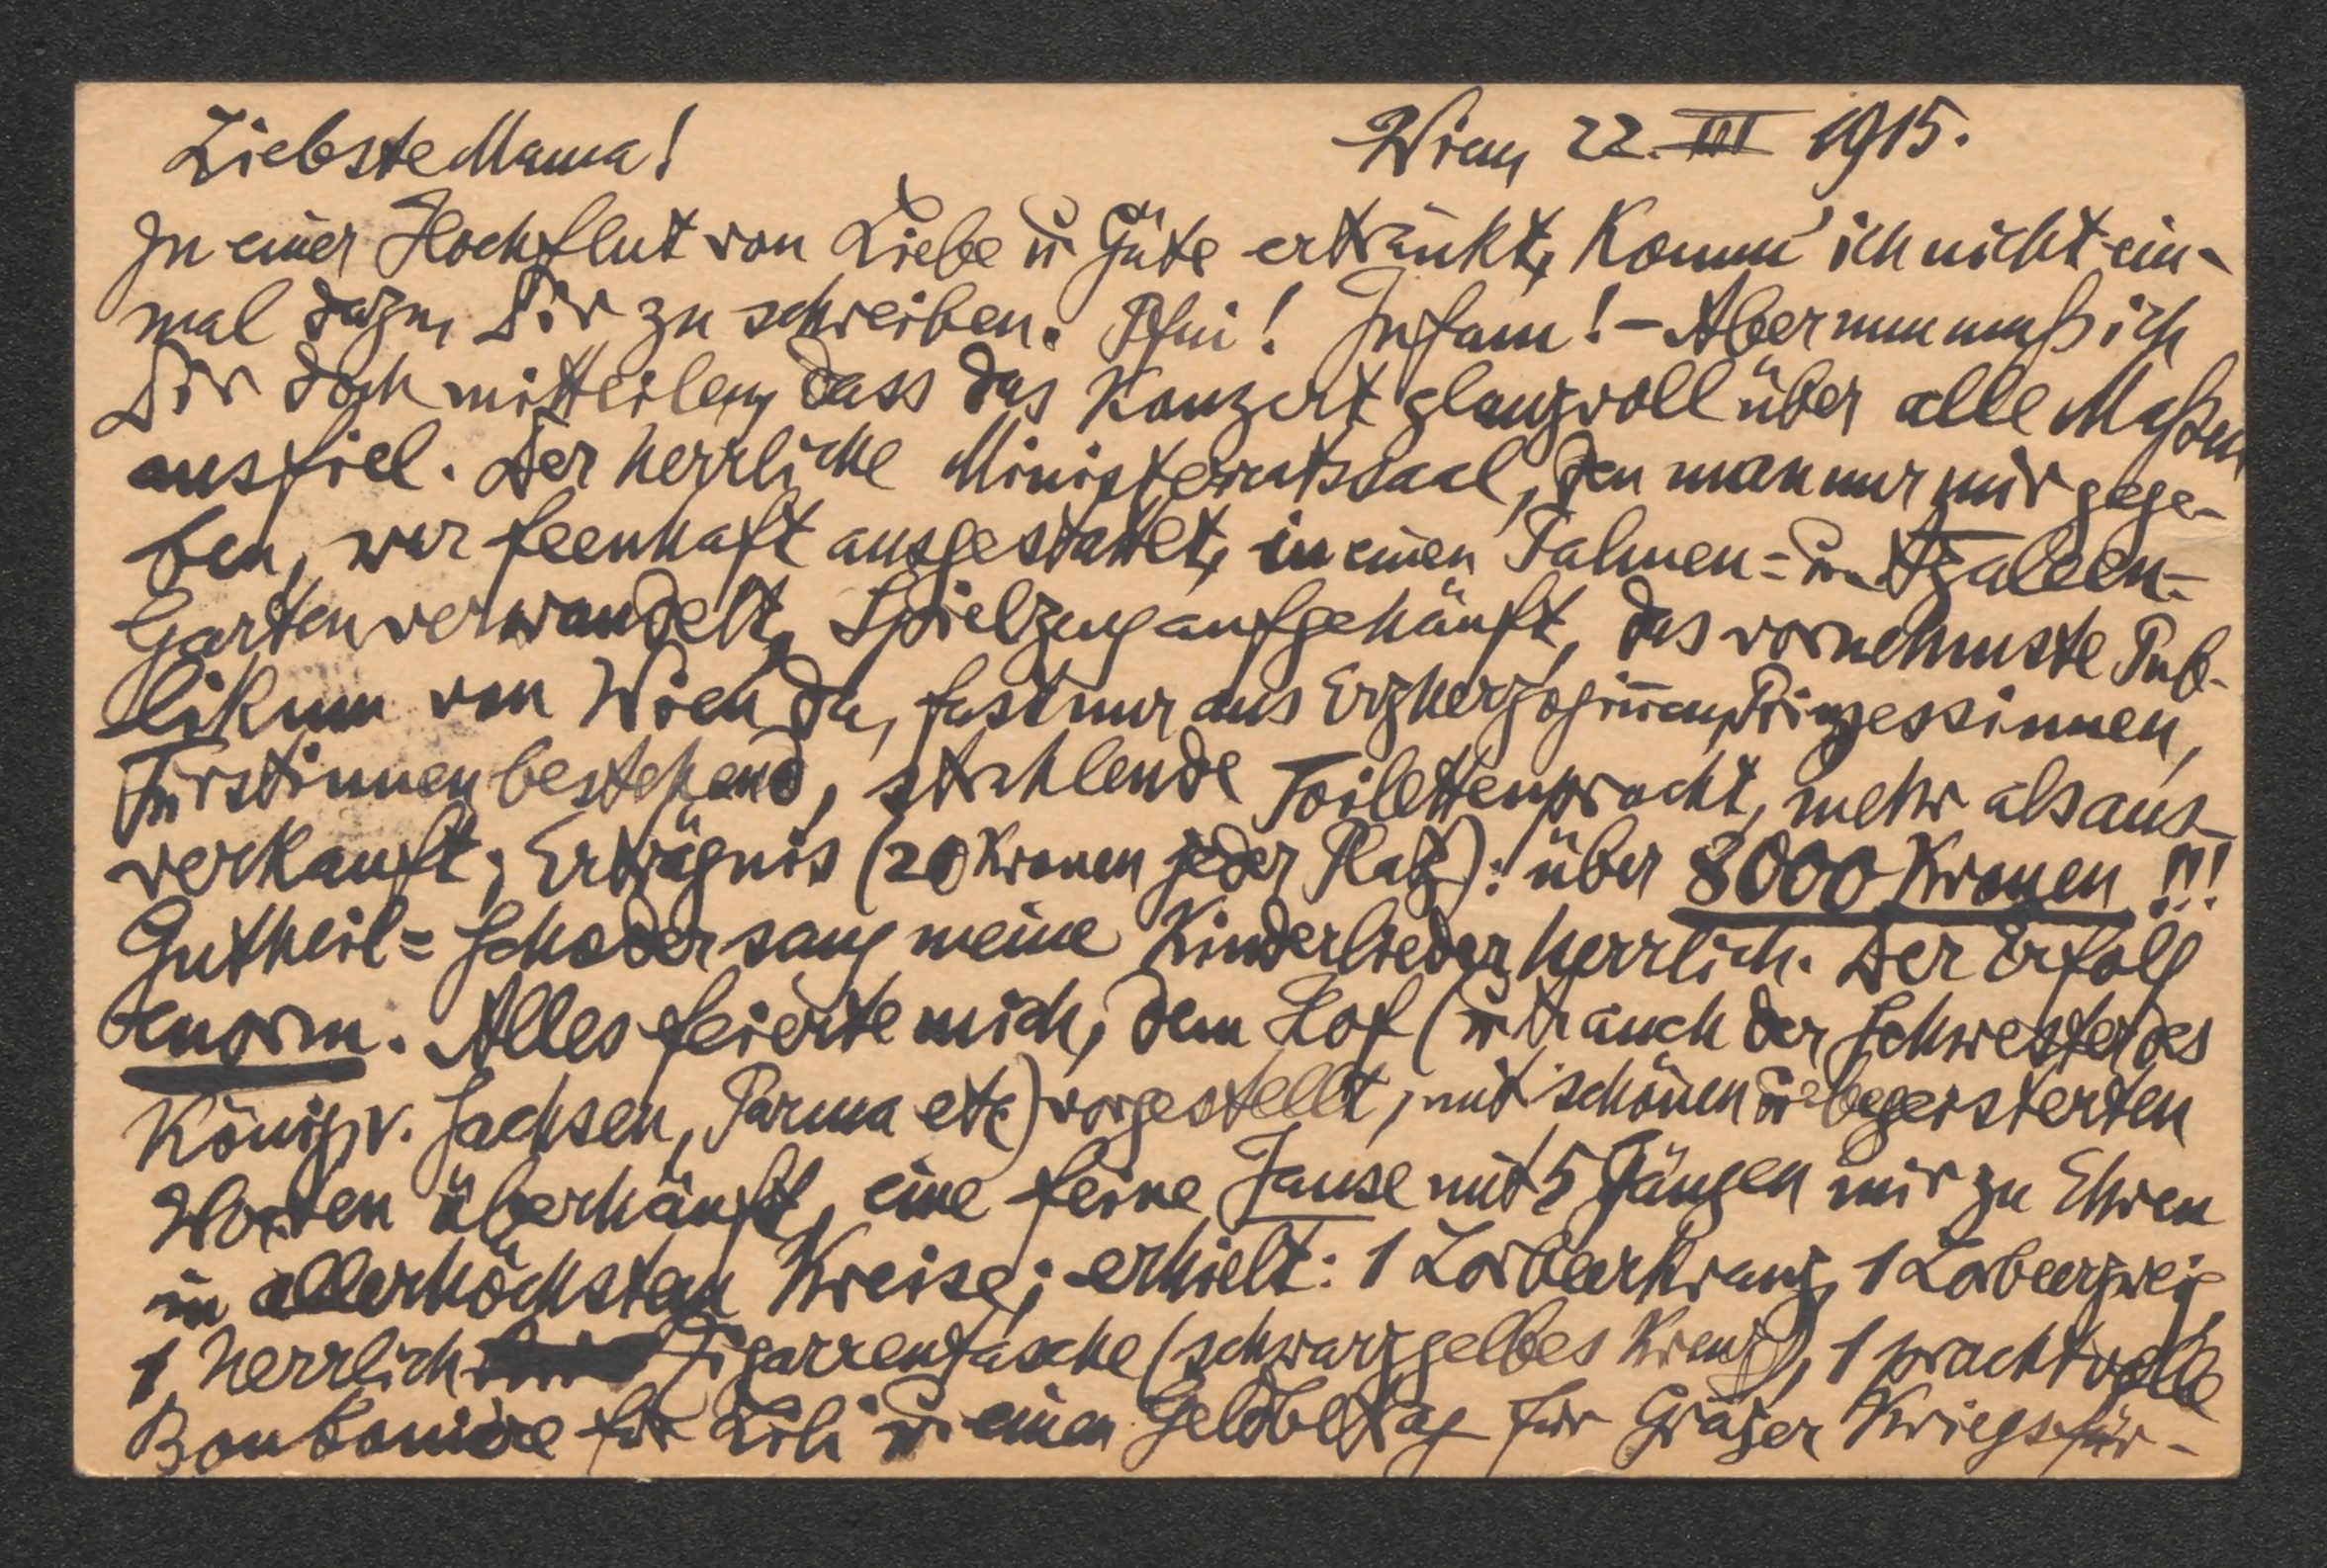 Liebste Mama! Wien, 22. III 1915.
In einer Hochflut von Liebe u. Güte ertränkt, komm' ich nicht ein-
mal dazu, Dir zu schreiben. Pfui! Infam! – Aber nun muß ich
Dir doch mitteilen, dass das Konzert glanzvoll über alle Maßen
ausfiel. Der herrliche Ministerratssaal, den man nur mir gege-
ben, war feenhaft ausgestattet, in einen Palmen= u. Azaleen-
Garten verwandelt, Spielzeug aufgehäuft, das vornehmste Pub-
likum von Wien da, fast nur aus Erzherzoginnen, Prinzessinnen,
Fürstinnen bestehend, strahlende Toilettenpracht, mehr als aus-
verkauft; Erträgnis (20 Kronen jeder Platz): über 8000 Kronen !!!
Gutheil=Schoder sang meine Kinderlieder herrlich. Der Erfolg
enorm. Alles feierte mich, dem Hof (u. auch der Schwester des
Königs v. Sachsen, Parma etc) vorgestellt, mit schönen u. begeisterten
Worten überhäuft, eine feine Jause mit 5 Gängen mir zu Ehren
in allerhöchstem Kreise; erhielt: 1 Lorbeerkranz, 1 Lorbeerzweig,
1 herrlich Zigarrentasche (schwarzgelbes Kreuz), 1 prachtvolle
Bonboniere für Lili u. einen Geldbetrag für Grazer Kriegsfür-